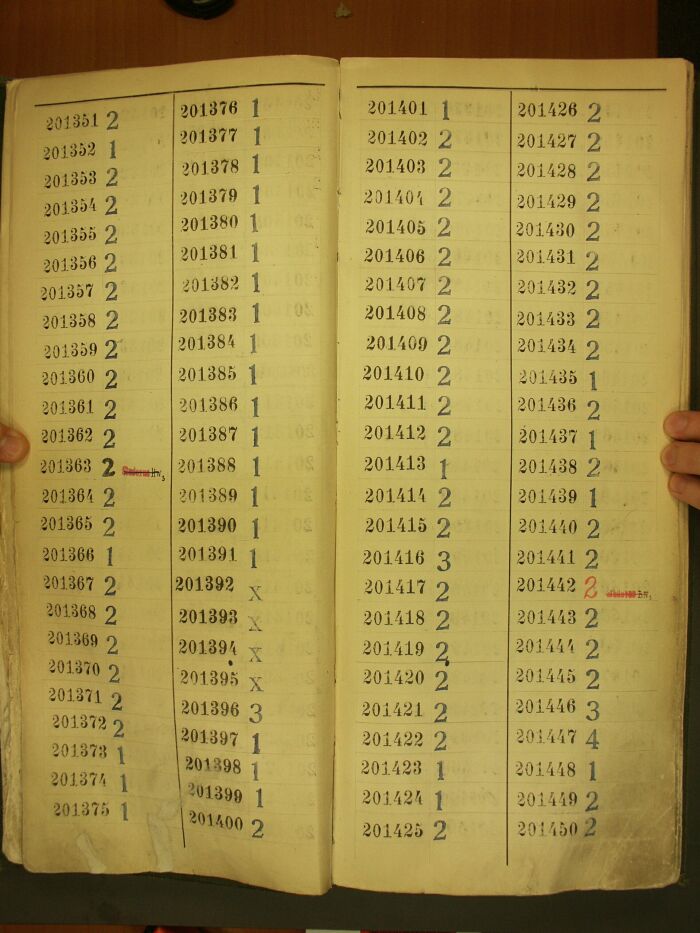 201351 2
201352 1
201353 2
201354 2
201355 2
201356 2
201357 2
201358 2
201359 2
201360 2
201361 2
201362 2
201363 2
201364 2
201365 2
201366 1
201367 2
201368 2
201369 2
201370 2
201371 2
201372 2
201373 1
201374 1
201375 1
201376 1
201377 1
201378 1
201379 1
201380 1
201381 1
201382 1
201383 1
201384 1
201385 1
201386 1
201387 1
201388 1
201389 1
201390 1
201391 1
201392 X
201393 X
201394 X
201395 X
201396 3
201397 1
201398 1
201399 1
201400 2
201401 1
201402 2
201403 2
201404 2
201405 2
201406 2
201407 2
201408 2
201409 2
201410 2
201411 2
201412 2
201413 1
201414 2
201415 2
201416 3
201417 2
201418 2
201419 2
201420 2
201421 2
201422 2
201423 1
201424 1
201425 2
201426 2
201427 2
201428 2
201429 2
201430 2
201431 2
201432 2
201433 2
201434 2
201435 1
201436 2
201437 1
201438 2
201439 1
201440 2
201441 2
201442 2
201443 2
201444 2
201445 2
201446 3
201447 4
201448 1
201449 2
201450 2